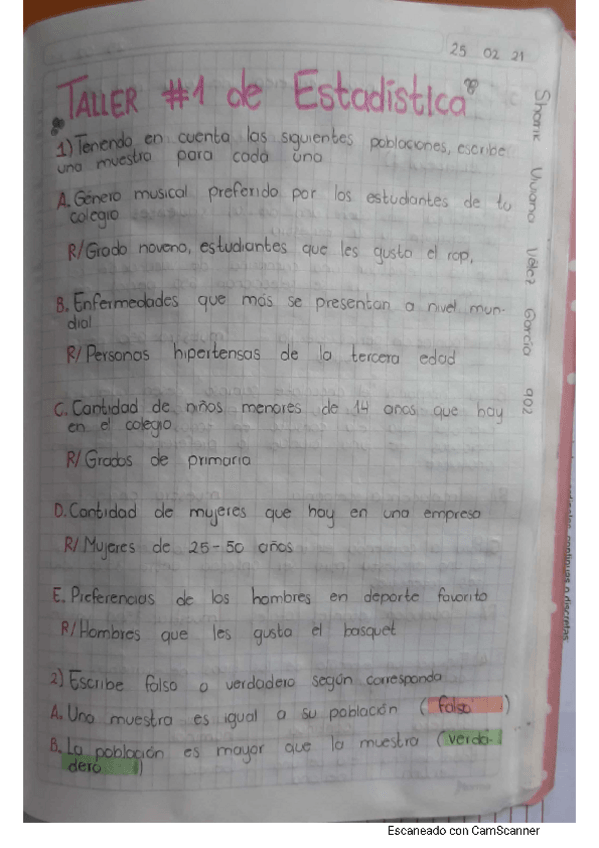 25 02 21
TALLER #1 de Estadística
1) Teniendo en cuenta las siguientes poblaciones, escribe
una muestra para cada una
A. Género musical preferido por los estudiantes de tu
colegio
R/Grado noveno, estudiantes que les gusta el rap,
B. Enfermedades que más se presentan a nivel mun-
dial
R/Personas hipertensas de la tercera edad
C. Cantidad de niños menores de 14 años que hay
en el colegio
R/Grados de primaria
D. Cantidad de mujeres que hay en una empresa
R/Mujeres de 25-50 años
E. Preferencias de los hombres en deporte favorito
R/Hombres que les gusta el basquet
2) Escribe falso o verdadero según corresponda
A. Una muestra es igual a su población (falso)
B. La población es mayor que la muestra (verda-
dero)
Viviana Vélez García 902
continuas o discretas
Escaneado con CamScanner